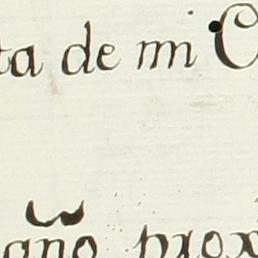 ta de mi C
año prox